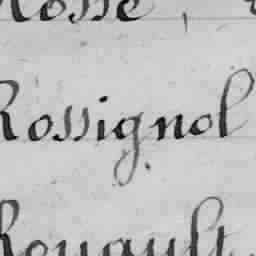 Rosse,
Rossignol
Rouault